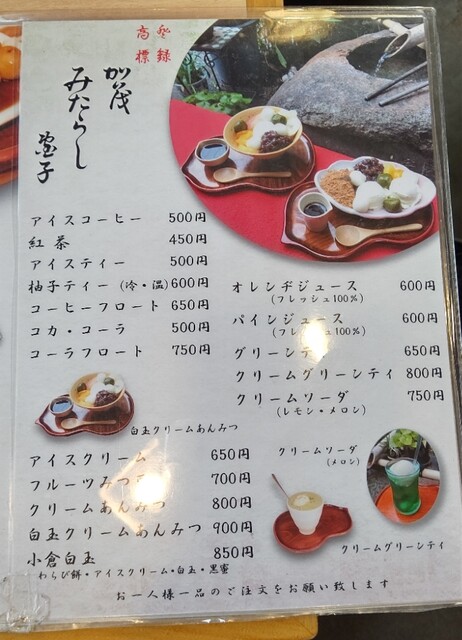 登録
商標
加茂
みたらし
団子
アイスコーヒー 500円
紅茶 450円
アイスティー 500円
柚子ティー (冷・温) 600円
コーヒーフロート 650円
コカ・コーラ 500円
コーラフロート 750円
オレンヂジュース 600円
(フレッシュ100%)
パインジュース 600円
(フレッシュ100%)
グリーンティ 650円
クリームグリーンティ 800円
クリームソーダ 750円
(レモン・メロン)
白玉クリームあんみつ
アイスクリーム 650円
フルーツみつ 700円
クリームあんみつ 800円
白玉クリームあんみつ 900円
小倉白玉 850円
わらび餅・アイスクリーム・白玉・黒蜜
クリームソーダ
(メロン)
クリームグリーンティ
お一人様一品のご注文をお願い致します